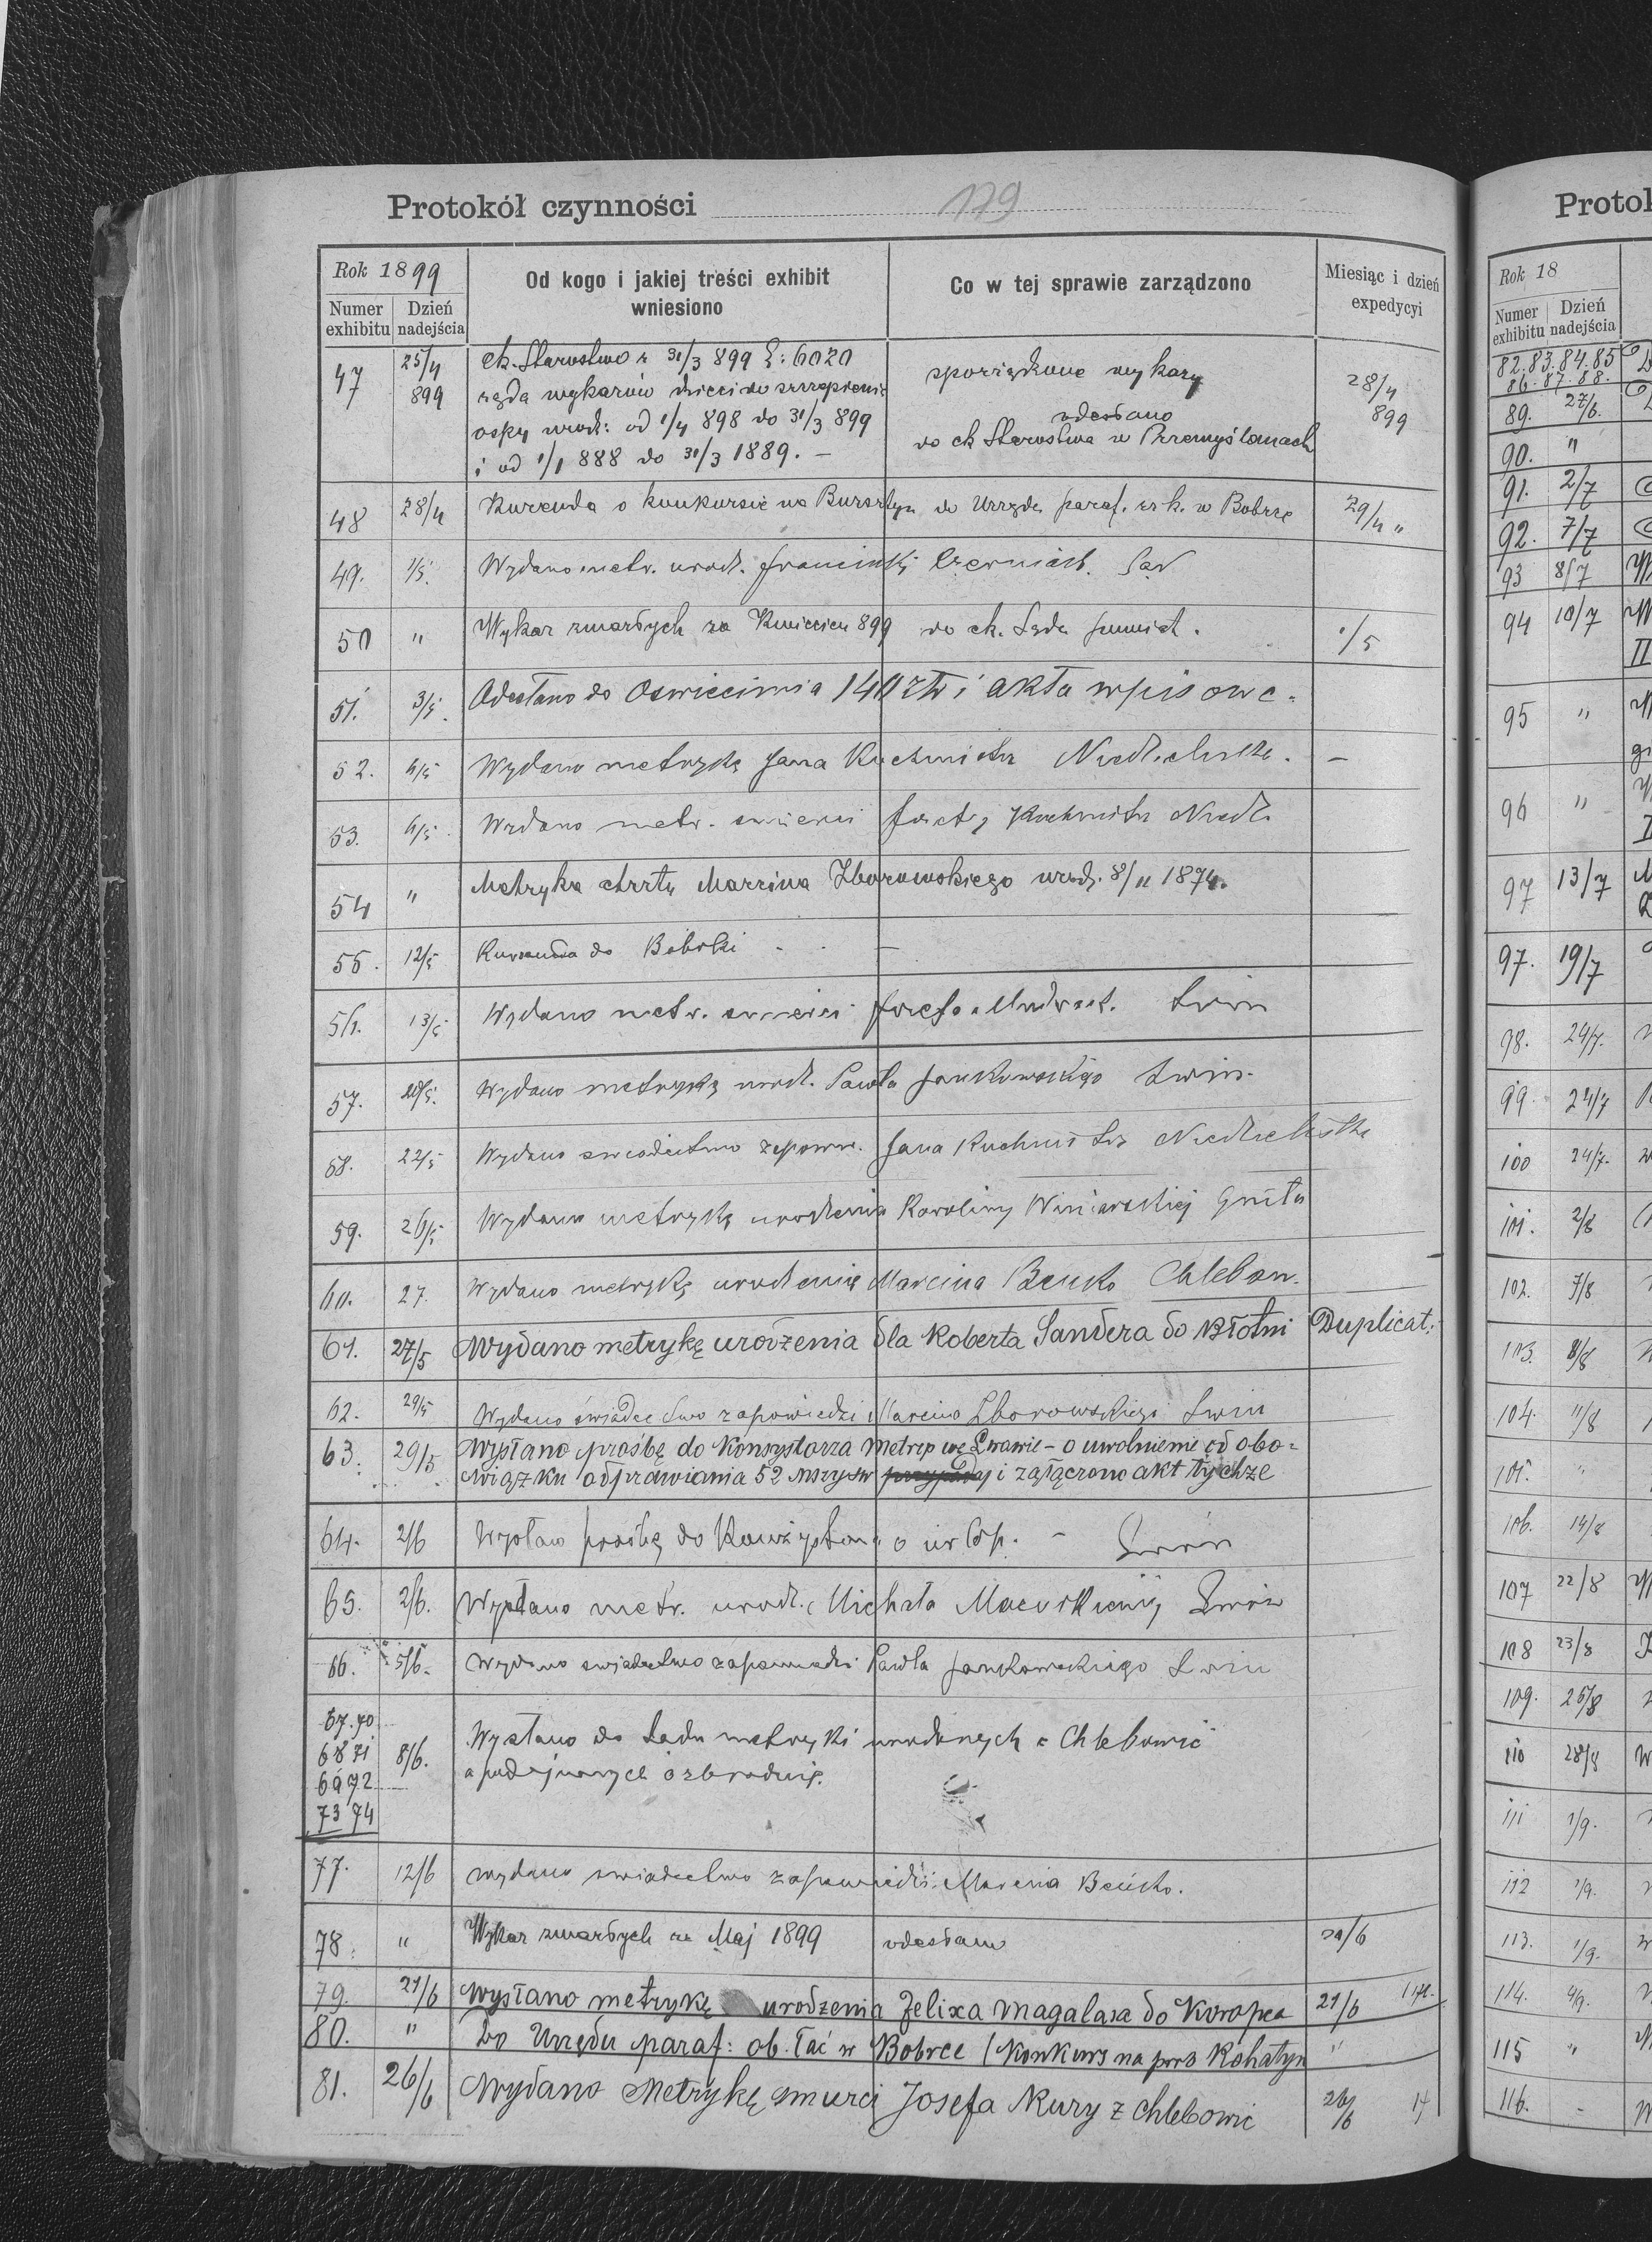 Protokół czynności 179
Rok 1899
Numer exhibitu
Dzień nadejścia
Od kogo i jakiej treści exhibit wniesiono
Co w tej sprawie zarządzono
Miesiąc i dzień expedycyi
47 25/4 899 ck. Starostwo z 31/3 899 L: 6020
żąda wykazów dzieci do szczepienia
ospy urodz: od 1/4 898 do 31/3 899
i od 1/1 888 do 31/3 1889. –
sporządzone wykazy
odesłano
do ck Starostwa w Przemyślanach
28/4 899
48 28/4 Kurenda o konkursie na Bursztyn do Urzędu paraf. w Bobrce 29/4 "
49. 1/5. Wydano metr. urodz. Franciszki Czerniach. Sąd
50 " Wykaz zmarłych za Kwiecień 899 do ck. Sądu powiat. 1/5
51. 3/5. Odesłano do Oswiecimia 140 złr i akta wpisowe.
52. 6/5 Wydano metrykę Jana Kuchmistrz Niedzieliska. –
53. 6/5. Wydano metr. smierci Kuchmistrz Niedz.
54 " Metryka chrztu Marcina Zborowskiego urodz. 8/11 1874.
55. 12/5 Kurenda do Bóbrki – –
56. 13/5 Wydano metr. smierci Józefa Swirz
57. 20/5. Wydano metrykę urodz. Pawła Jankowskiego Swirz.
58. 22/5 Wydano swiadectwo zapow. Jana Kuchmistrz Niedzieliska
59. 26/5 Wydano metrykę urodzenia Karoliny Winiarskiej Gniła
60. 27. Wydano metrykę urodzenia Marcina Beńko Chlebow.
61. 27/5 Wydano metrykę urodzenia dla Roberta Sandera do Błotni Duplicat.
62. 29/5 Wydano świadectwo zapowiedzi Marcina Zborowskiego Swirz
63. 29/5 Wysłano prośbę do Konsystorza Metrop we Lwowie – o uwolnienie od obo=
wiązku odprawiania 52 Mszy św i załączono akt tychże
64. 2/6 Wysłano prośbę do Konsystorza o urlop. – Swirz
65. 2/6. Wysłano metr. urodz. Michała Swirz
66. 5/6. Wydano swiadectwo zapowiedzi Pawła Jankowskiego Swirz
67. 70
68 71
69 72
73 74
8/6. Wysłano do Sądu metryki urodzonych z Chlebowic
a podejrzanych o zbrodnię.
77. 12/6 wydano swiadectwo zapowiedzi Marcina Beńko.
78. " Wykaz zmarłych za Maj 1899 odesłano 20/6
79. 21/6 Wysłano metrykę urodzenia Felixa Magalasa do Koropca 21/6
80. " Do Urzędu paraf: ob. łać w Bobrce (Konkurs na prob Rohatyn "
81. 26/6 Wydano Metrykę smierci Josefa Kury z Chlebowic 26/6 14
Protok
Rok 18
Numer exhibitu
Dzień nadejścia
82. 83. 84. 85
86. 87. 88.
89. 27/6.
90. "
91. 2/7
92. 7/7
93 8/7
94 10/7
95 "
96 "
97 13/7
97. 19/7
98. 24/7.
99. 24/7
100 24/7.
101. 2/8
102. 7/8
103. 8/8
104. 11/8
105. "
106. 14/8
107 22/8
108 23/8
109. 25/8
110 28/8
111 1/9.
112 1/9.
113. 1/9.
114. 4/9.
115 "
116. -